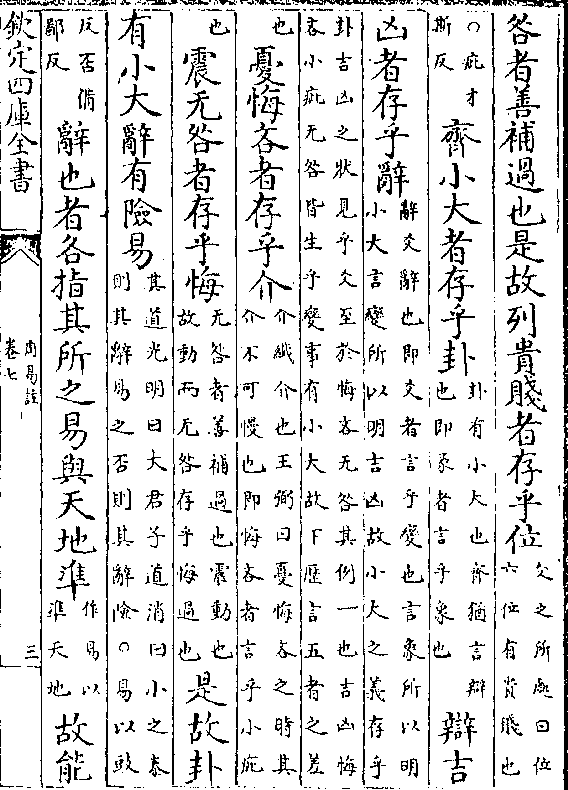 咎者善補過也是故列貴賤者存乎位
爻之所處曰位
六位有貴賤也
○疵才
斯反
齊小大者存乎卦
卦有小大也齊猶言辯
也即彖者言乎象也
辯吉
凶者存乎辭
辭爻辭也即爻者言乎變也言象所以明
小大言變所以明吉凶故小大之義存乎
卦吉凶之狀見乎爻至於悔吝无咎其例一也吉凶悔
吝小疵无咎皆生乎變事有小大故下歷言五者之差
也
憂悔吝者存乎介
介纖介也王弼曰憂悔吝之時其
介不可慢也即悔吝者言乎小疵
也
震无咎者存乎悔
无咎者善補過也震動也
故動而无咎存乎悔過也
是故卦
有小大辭有險易
其道光明曰大君子道消曰小之泰
則其辭易之否則其辭險○易以豉
反否備
鄙反
辭也者各指其所之易與天地準
作易以
準天地
故能
欽定四庫全書
周易註
卷七
三